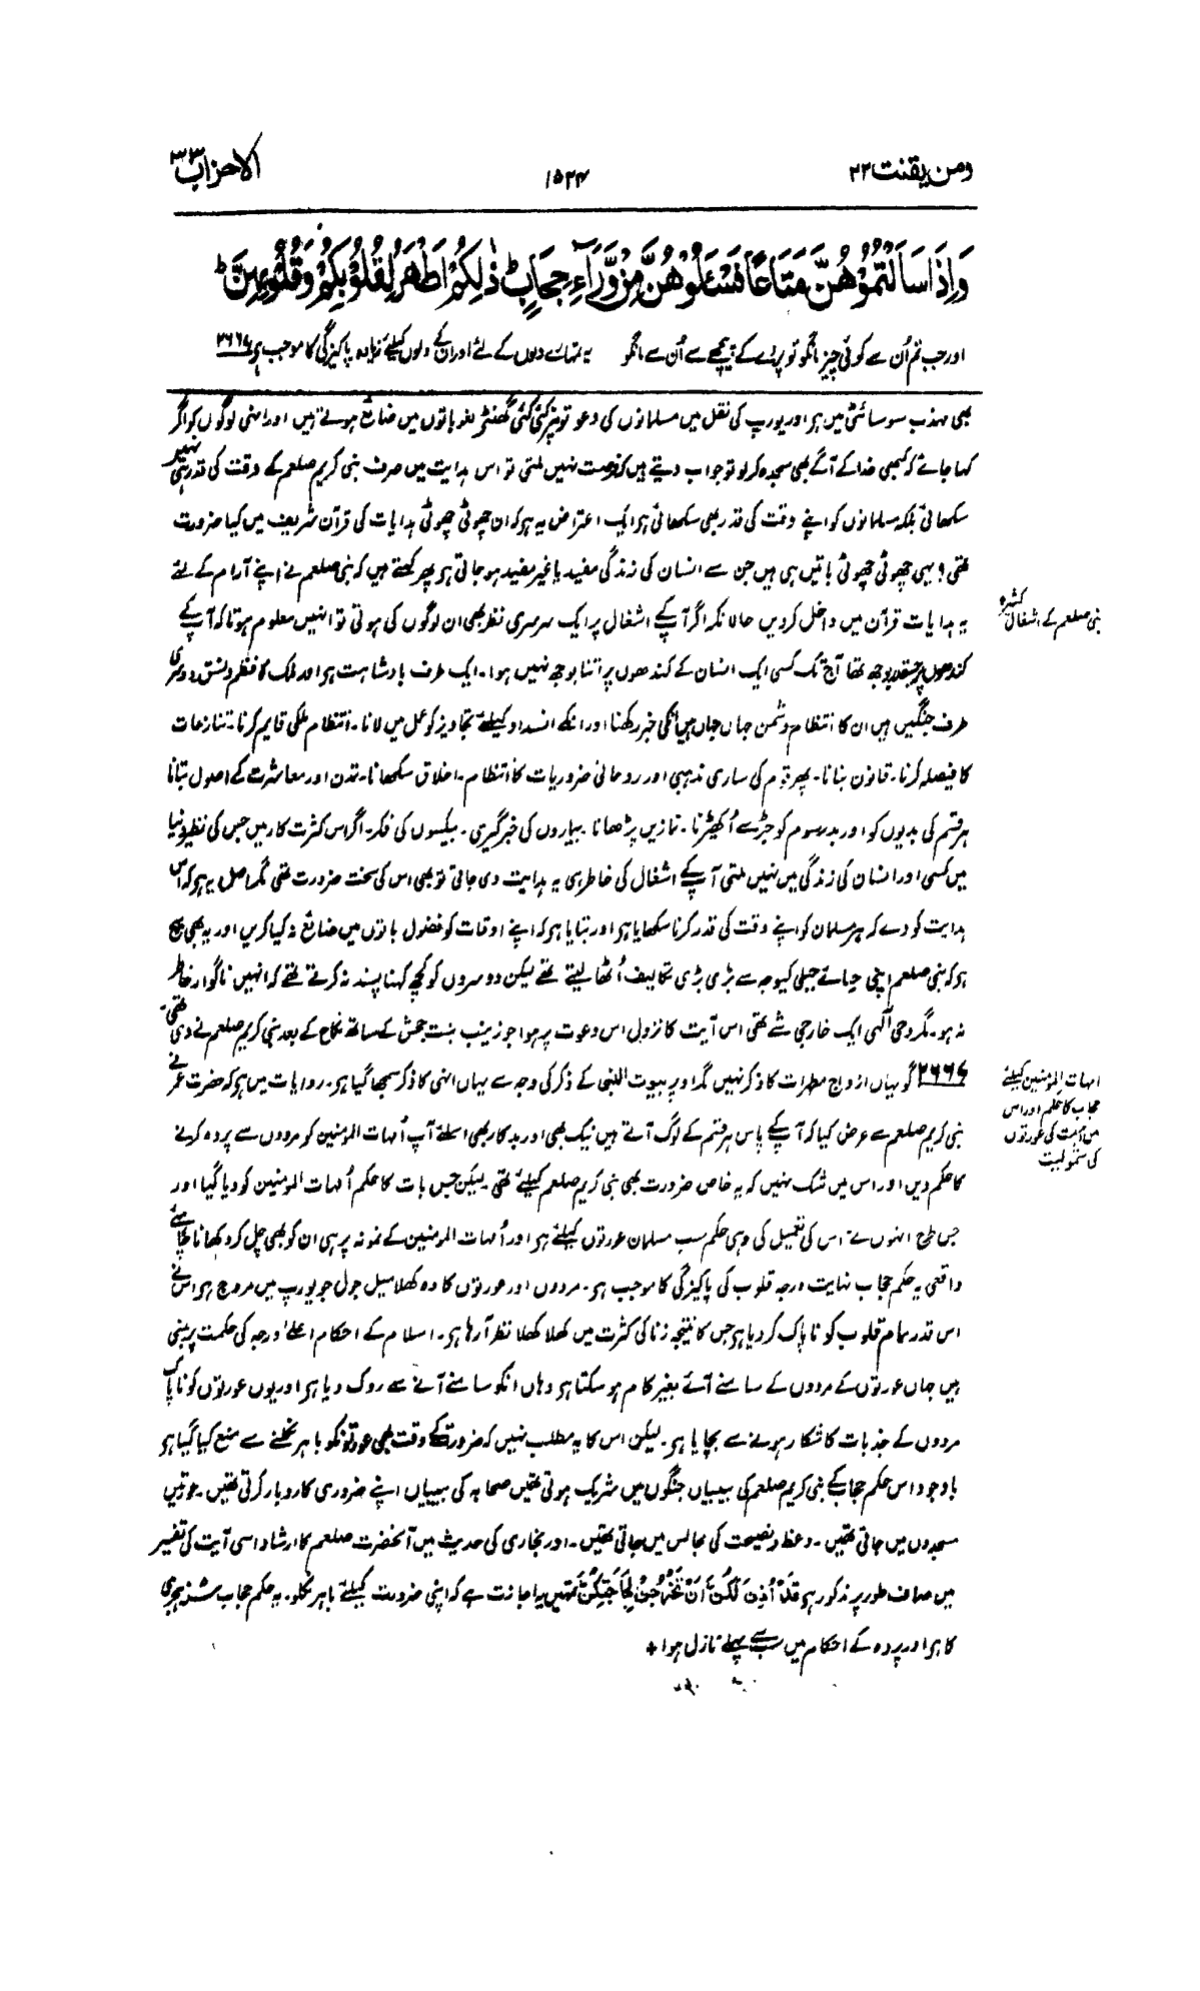 ومن یقنت ۲۲
۱۵۲۴
الاحزاب ۳۳
وَاِذَا سَاَلْتُمُوْهُنَّ مَتَاعًا فَسْـَٔلُوْهُنَّ مِنْ وَّرَآءِ حِجَابٍ ؕ ذٰلِكُمْ اَطْهَرُ لِقُلُوْبِكُمْ وَقُلُوْبِهِنَّ ؕ
اور جب تم اُن سے کوئی چیز مانگو تو پردے کے پیچھے سے اُن سے مانگو یہ تمہارے دلوں کے لئے اور ان کے دلوں کیلئے زیادہ پاکیزگی کا موجب ہے ۲۶۶۷
بھی مہذب سوسائٹی میں ہو اور یورپ کی نقل میں مسلمانوں کی دعوتوں پر کئی کئی گھنٹے لغو باتوں میں ضائع ہوتے ہیں اور انہی لوگوں کو اگر
کہا جائے کہ کبھی خدا کے آگے بھی سجدہ کر لو تو جواب دیتے ہیں کہ فرصت نہیں ملتی تو اس ہدایت میں صرف نبی کریم صلعم کے وقت کی قدر ہی نہیں
سکھائی بلکہ مسلمانوں کو اپنے وقت کی قدر بھی سکھائی ہو ایک اعتراض یہ ہو کہ ان چھوٹی چھوٹی ہدایات کی قرآن شریف میں کیا ضرورت
تھی؟ یہی چھوٹی چھوٹی باتیں ہی ہیں جن سے انسان کی زندگی مفید یا غیر مفید ہو جاتی ہو پھر کہتے ہیں کہ نبی صلعم نے اپنے آرام کے لئے
یہ ہدایات قرآن میں داخل کردیں حالانکہ اگر آپکے اشغال پر ایک سرسری نظر بھی ان لوگوں کی ہوتی تو انہیں معلوم ہوتا کہ آپ کے
کندھوں پر جسقدر بوجھ تھا آج تک کسی ایک انسان کے کندھوں پر اتنا بوجھ نہیں ہوا۔ ایک طرف بادشاہت ہو اور ملک کا نظم و نسق۔ دوسری
طرف جنگیں ہیں ان کا انتظام دشمن جہاں جہاں ہیں انکی خبر رکھنا اور انکے انسداد کیلئے تجاویز کو عمل میں لانا۔ انتظام ملکی قایم کرنا۔ تنازعات
کا فیصلہ کرنا۔ قانون بنانا۔ پھر قوم کی ساری مذہبی اور روحانی ضروریات کا انتظام۔ اخلاق سکھانا۔ تمدن اور معاشرت کے اصول بتانا
ہر قسم کی بدیوں کو اور بد رسوم کو جڑ سے اُکھیڑنا۔ نمازیں پڑھانا بیماروں کی خبر گیری۔ بیکسوں کی فکر۔ اگر اس کثرت کار میں جس کی نظیر دنیا
میں کسی اور انسان کی زندگی میں نہیں ملتی آپ کے اشغال کی خاطر ہی یہ ہدایت دی جاتی تو بھی اس کی سخت ضرورت تھی مگر اصل یہ ہو کہ اس
ہدایت کو دے کر ہر مسلمان کو اپنے وقت کی قدر کرنا سکھایا ہو اور بتایا ہو کہ اپنے اوقات کو فضول باتوں میں ضائع نہ کیا کریں اور یہ بھی سچ
ہو کہ نبی صلعم اپنی حیائے جبلی کیوجہ سے بڑی بڑی تکالیف اُٹھا لیتے تھے لیکن دوسروں کو کچھ کہنا پسند نہ کرتے تھے کہ انہیں ناگوار خاطر
نہ ہو۔ مگر وحی آلہی ایک خارجی شے تھی اس آیت کا نزول اس دعوت پر ہوا جو زینب بنت جحش کے ساتھ نکاح کے بعد نبی کریم صلعم نے دی تھی۔
۲۶۶۷ گو یہاں ازواج مطہرات کا ذکر نہیں مگر اوپر بیوت النبی کے ذکر کی وجہ سے یہاں انہی کا ذکر سمجھا گیا ہو۔ روایات میں ہو کہ حضرت عمر نے
نبی کریم صلعم سے عرض کیا کہ آپکے پاس ہر قسم کے لوگ آتے ہیں نیک بھی اور بدکار بھی اسلئے آپ اُمہات المؤمنین کو مردوں سے پردہ کرنے
کا حکم دیں اور اس میں شک نہیں کہ یہ خاص ضرورت بھی نبی کریم صلعم کیلئے تھی لیکن جس بات کا حکم اُمہات المومنین کو دیا گیا اور
جس طرح انہوں نے اس کی تعمیل کی وہی حکم سب مسلمان عورتوں کیلئے ہو اور اُمہات المومنین کے نمونہ پر ہی ان کو بھی چل کر دکھانا چاہئے
واقعی یہ حکم حجاب نہایت درجہ قلوب کی پاکیزگی کا موجب ہو۔ مردوں اور عورتوں کا وہ کھلا میل جول جو یورپ میں مروج ہو اس نے
اس قدر عام قلوب کو ناپاک کر دیا ہو جس کا نتیجہ زنا کی کثرت میں کھلا کھلا نظر آرہا ہو۔ اسلام کے احکام اعلےٰ درجہ کی حکمت پر مبنی
ہیں جہاں عورتوں کے مردوں کے سامنے آئے بغیر کام ہو سکتا ہو وہاں انکو سامنے آنے سے روک دیا ہو اور یوں عورتوں کو ناپاک
مردوں کے جذبات کا شکار ہونے سے بچایا ہو۔ لیکن اس کا یہ مطلب نہیں کہ ضرورت کے وقت بھی عورتونکو باہر نکلنے سے منع کیا گیا ہو
باوجود اس حکم حجاب کے نبی کریم صلعم کی بیبیاں جنگوں میں شریک ہوتی تھیں صحابہ کی بیبیاں اپنے ضروری کاروبار کرتی تھیں۔ عورتیں
مسجدوں میں جاتی تھیں۔ وعظ و نصیحت کی مجالس میں جاتی تھیں۔ اور بخاری کی حدیث میں آنحضرت صلعم کا ارشاد اسی آیت کی تفسیر
میں صاف طور پر مذکور ہو قَدْ اُذِنَ لَكُنَّ اَنْ تَخْرُجْنَ لِحَاجَتِكُنَّ تمہیں یہ اجازت ہے کہ اپنی ضرورت کیلئے باہر نکلو۔ یہ حکم حجاب ہجری
کا ہو اور پردہ کے احکام میں سب سے پہلے نازل ہوا +
نبی صلعم کے اشغال کثیرہ
امہات المؤمنین کیلئے
حجاب کا حکم اور اس
میں امت کی عورتوں
کی شمولیت